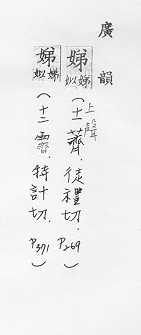 廣韻
娣 姒娣 (上聲 十一薺, 徒禮切, P269)
娣 姒娣 (十二霽, 特計切, P371)